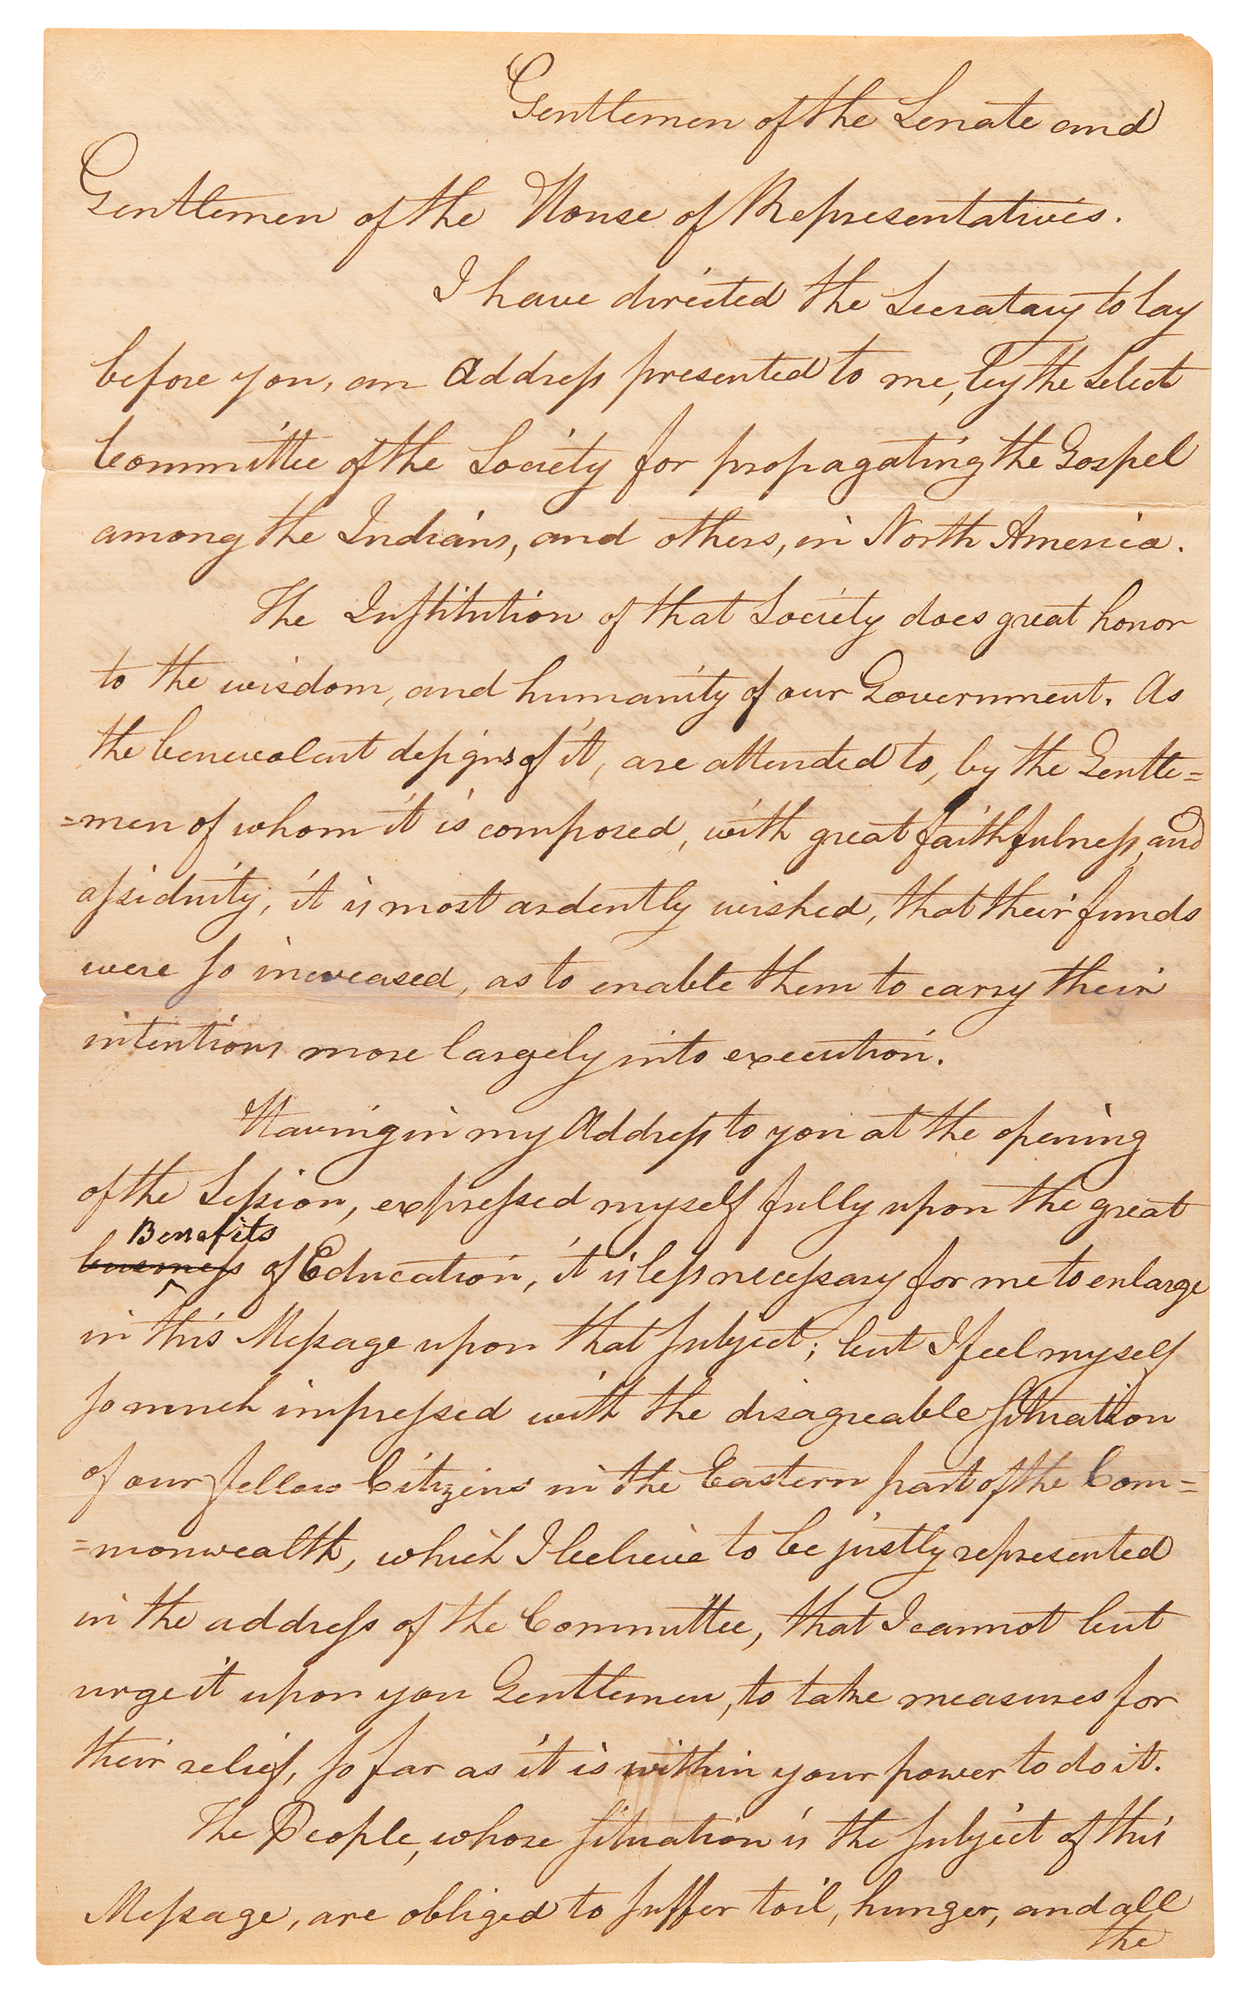 Gentlemen of the Senate and
Gentlemen of the House of Representatives.
I have directed the Secratary to lay
before you, an Address presented to me, by the Select
Committee of the Society for propagating the Gospel
among the Indians, and others, in North America.
The Institution of that Society does great honor
to the wisdom, and humanity of our Government. As
the benevolent designs of it, are attended to, by the Gentle=
=men of whom it is composed, with great faithfulness, and
assiduity; it is most ardently wished, that their funds
were so increased, as to enable them to carry their
intentions more largely into execution.
Having in my Address to you at the opening
of the Session, expressed myself fully upon the great
Benefits
business of Education, it is less necessary for me to enlarge
in this Message upon that subject; but I feel myself
so much impressed with the disagreable situation
of our fellow Citizens in the Eastern part of the Com=
=monwealth, which I believe to be justly represented
in the address of the Committee, that I cannot but
urge it upon you Gentlemen, to take measures for
their relief, so far as it is within your power to do it.
The People, whose situation is the subject of this
Message, are obliged to suffer toil, hunger, and all
the